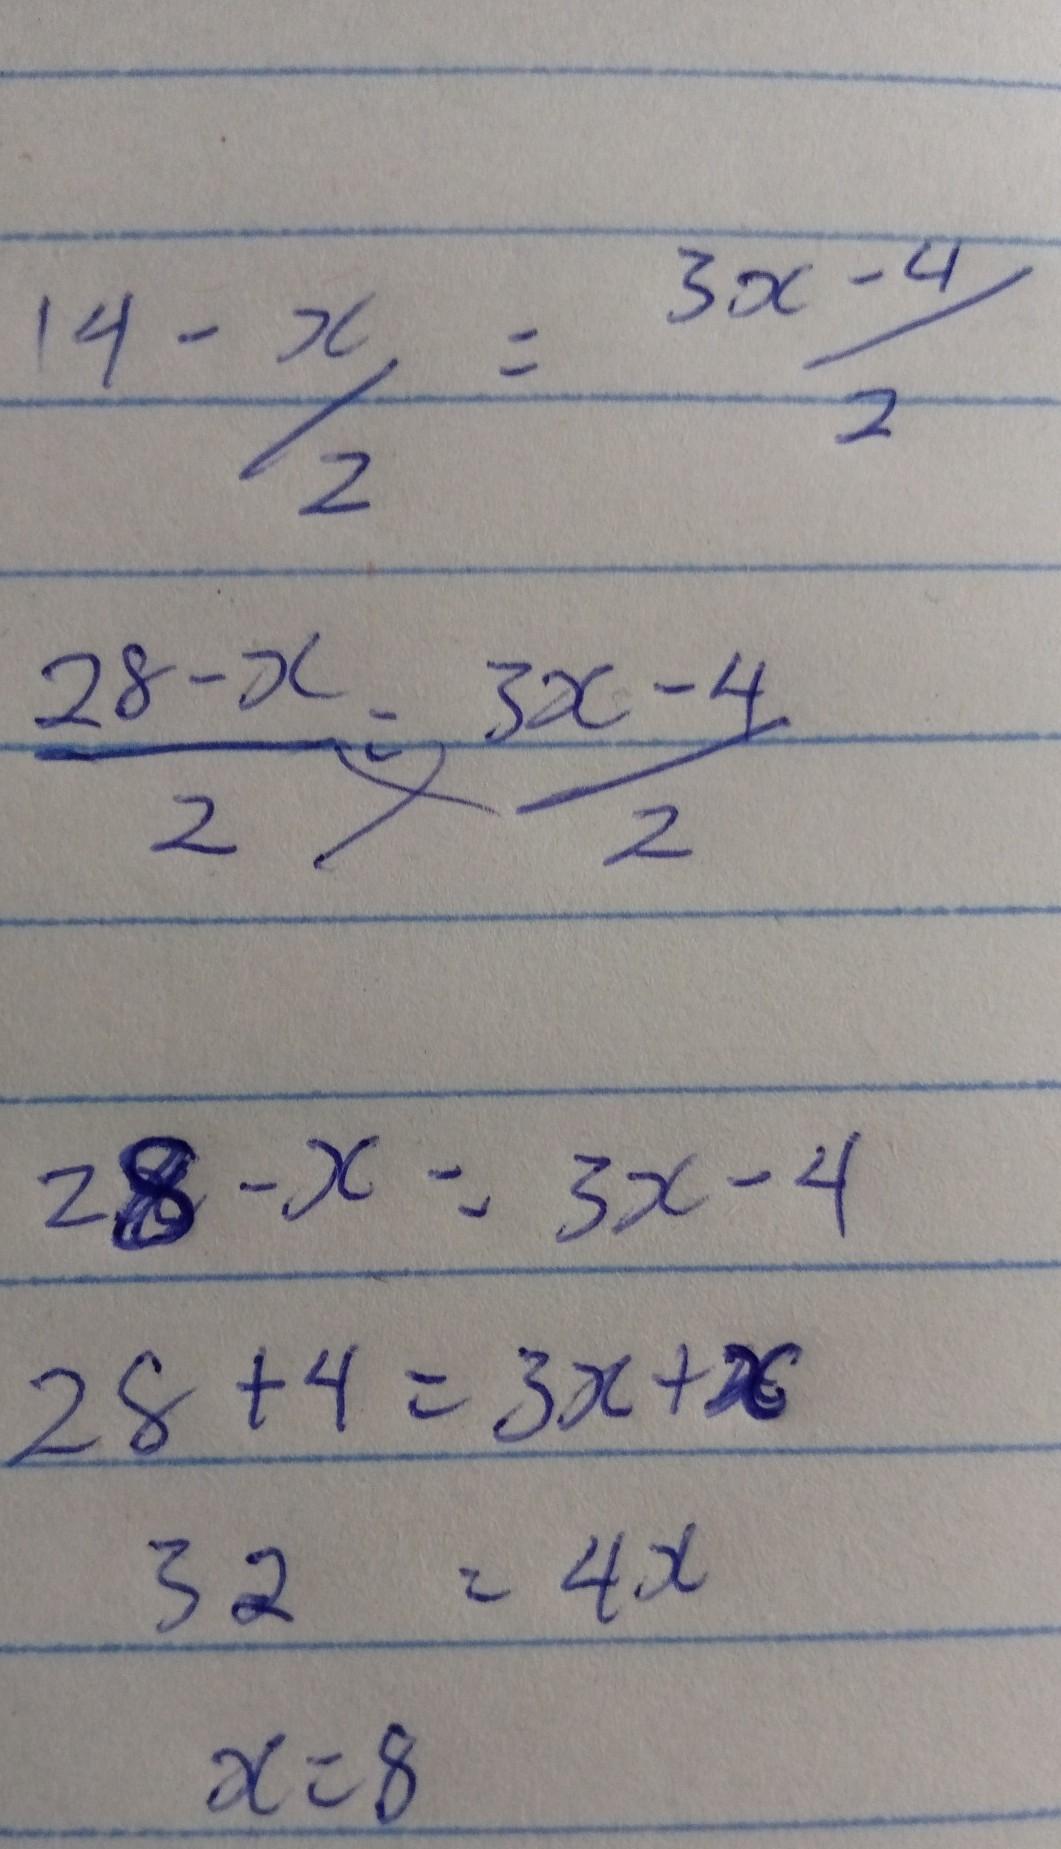 14 - x/2 = 3x - 4/2
28 - x/2 = 3x - 4/2
28 - x = 3x - 4
28 + 4 = 3x + x
32 = 4x
x = 8